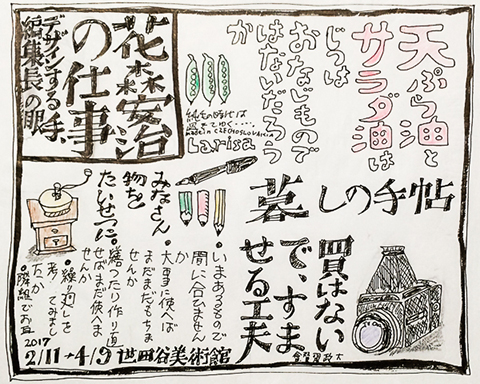 天ぷら油と
サラダ油は
じつは
おなじもので
はないだろう
か
花森安治
の仕事
デザインする手、
編集長の眼
Larisa
暮しの手帖
みなさん
物を
たいせつに
買はない
で、すま
せる工夫
•いまあるもので
間に合ひません
か
•大事に使へば
まだまだもちま
せんか
繕つたり作り直
せばまだ使へま
せんか
•繰り廻しを
考へてみまし
たか
•隣組でお互
2017
2/11→4/9 世田谷美術館